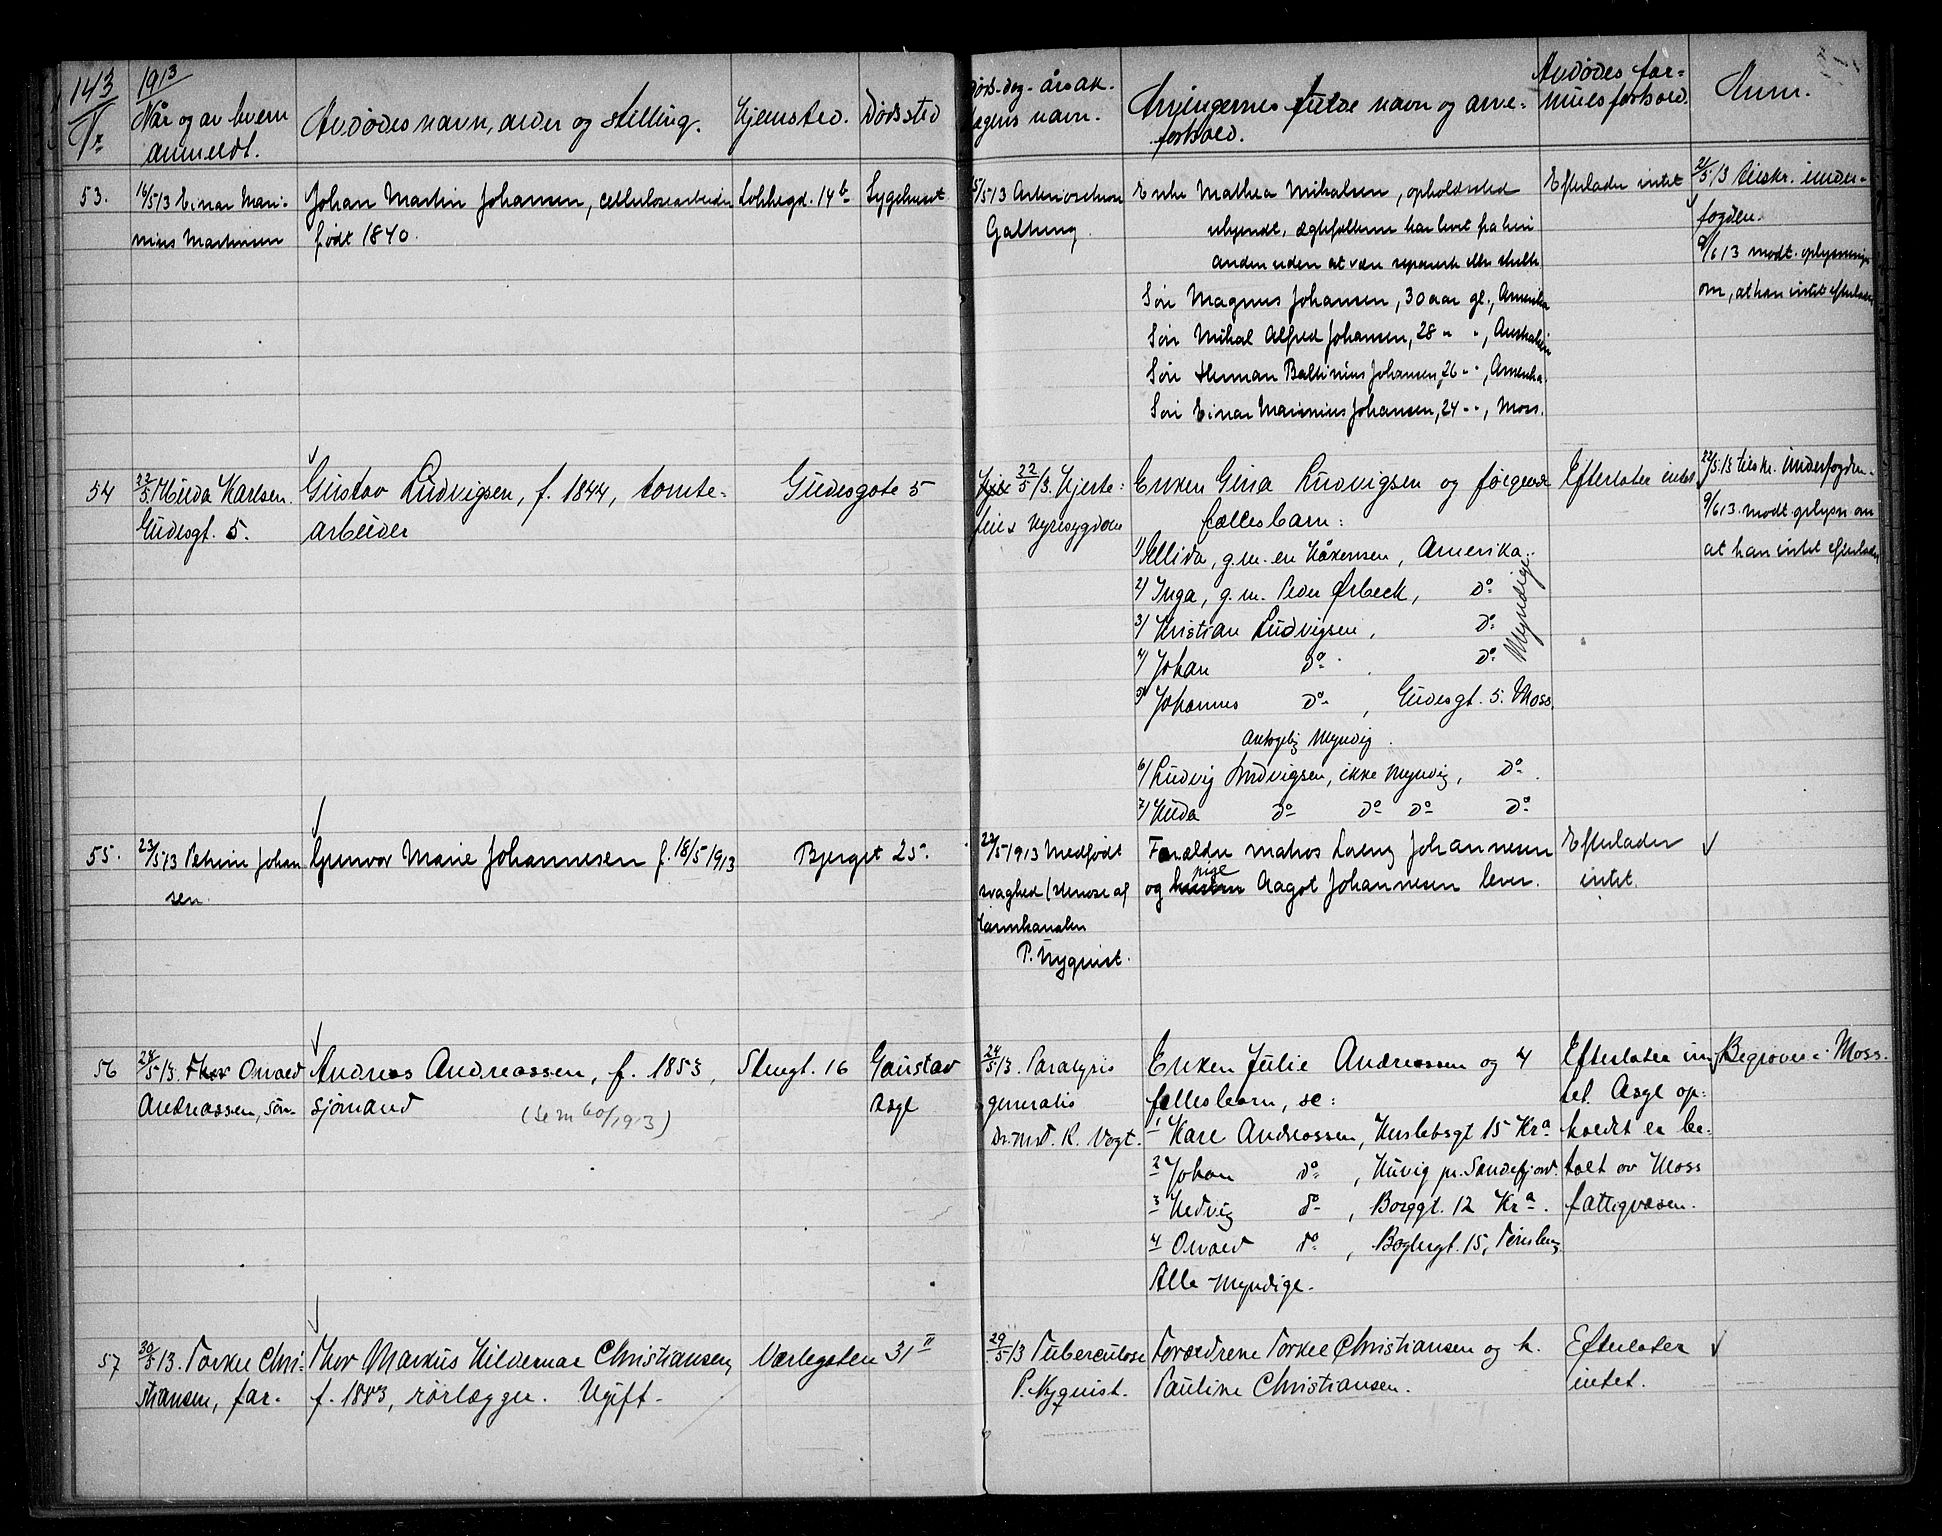 143
1913
Nr
Når og av hvem
anmeldt.
Avdødes navn, alder og stilling.
Hjemsted.
Dødssted
Døds-dag-årsak-
lægens navn.
Arvingernes fulde navn og arve-
forhold.
Avdødes for-
mues forhold.
Anm.
53.
16/5 13 Einar Mari-
nius Martinsen
Johan Martin Johansen, cellulosearbeider
født 1840.
Sygehuset
Galtung
Enke Mathea Mikalsen, opholdssted
ukjendt, ægtefællerne har levet fra hin
anden uden at være separert eller skilte
Søn Magnus Johansen, 30 aar gl., Amerika
Søn Mikal Alfred Johansen, 28 " ", Australien
Søn Herman Baltinius Johansen, 26 " ", Amerika.
Søn Einar Marinius Johansen, 24 " ", Moss.
Efterlader intet
21/5 13 tilskr. under-
fogden.
9/6 13 modt. oplysning
om, at han intet efterlader
54
22/5 Hilda Karlsen.
Gudesgt. 5.
Gustav Ludvigsen, f. 1844, tomte-
arbeider
Gudesgate 5
22/5 13. Hjerte-
feil & Nyresygdom
Enken Gina Ludvigsen og følgende
fællesbarn:
1/ Ellida, g.m. en Håkensen, Amerika.
2/ Inga, g.m. Peder Ørbeck, do
3/ Kristian Ludvigsen, do
4/ Johan do do
Myndige
5/ Johannes do, Gudesgt. 5. Moss.
Antagelig Myndig.
6/ Ludvig Ludvigsen, ikke Myndig, do.
7/ Hilda do do do do
Efterlater intet
22/5 13 tilskr. Underfogden.
9/6 13. modt. oplysn om
at han intet efterlader
55.
23/5 13 Petrine Johan
sen.
Gunvor Marie Johannesen f. 18/5 1913
Bjerget 25.
22/5 1913 Medfødt
svaghed (stenose af
tarmkanalen
P. Nyquist.
Forældre matros Lorenz Johannesen
og pige Aagot Johannesen lever.
Efterlader
intet.
56
24/5 13. Thor Orvald
Andreassen, søn.
Andreas Andreassen, f. 1853,
sjømand
(Se nr 60/1913)
Stengt. 16
Gaustad
asyl
24/5 13. Paralysis
generalis
Dr. med. R. Vogt.
Enken Julie Andreassen og 4
fællesbarn, se:
1 Kare Andreassen, Herslebsgt 15 Kra
2 Johan do, Huvig pr. Sandefjord.
3 Hedvig do, Borggt. 12 Kra.
4 Orvald do, Boglergt. 15, Tønsberg.
Alle Myndige.
Efterlater in-
tet. Asyl op-
holdet er be-
talt av Moss
fattigvæsen.
Begraves i Moss.
57
30/5 13. Torkel Chri-
stiansen, far.
Thor Markus Hildemar Christiansen,
f. 1883, rørlægger. Ugift.
Værlegaten 31 II
29/5 13 Tuberculose
P. Nyquist.
Forældrene Torkel Christiansen og h.
Pauline Christiansen.
Efterlater
intet.